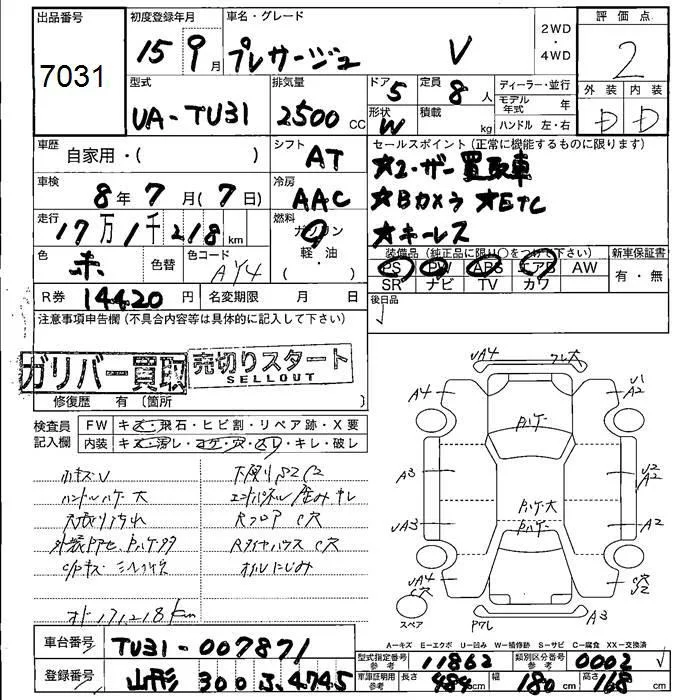 出品番号
7031
初度登録年月
15 9月
車名・グレード
プレサージュ V
2WD
・
4WD
評価点
2
型式
UA-TU31
排気量
2500 CC
ドア 5
形状 W
定員 8人
積載 kg
ディーラー・並行
モデル年式 年
ハンドル 左・右
外装 内装
D D
車歴
自家用・( )
シフト
AT
セールスポイント(正常に機能するものに限ります)
★ユーザー買取車
★Bカメラ ★ETC
★キーレス
車検
8年7月(7日)
冷房
AAC
走行
17万1千218km
燃料
ガソリン
軽・油
( )
色
赤
色替
色コード
AY4
装備品(純正品に限り○をつけて下さい)
PS PW ABS エアB AW
SR ナビ TV カワ
新車保証書
有・無
R券 14420円
名変期限 月 日
後日品
注意事項申告欄(不具合内容等は具体的に記入して下さい)
ガリバー買取
売切りスタート
SELLOUT
修復歴 有 (箇所 )
検査員
記入欄
FW キズ・飛石・ヒビ割・リペア跡・X要
内装 キズ・汚レ・コゲ・穴・スレ・キレ・破レ
ハンドルハゲ大
オド171,218km
UA4
A4
A3
UA3
UA4
フレ大
U1
A2
U2
A2
A2
C穴
U2
A3
Pハゲー
Pハゲ大
Pハゲー
スペア
A=キズ E=エクボ U=凹み W=補修跡 S=サビ C=腐食 XX=交換済
車台番号
TU31-007871
登録番号
山形 300 ふ 4745
型式指定番号
参考
11862
類別区分番号
参考
0002
車庫証明用
参考
長さ 484cm 幅 180cm 高さ 168cm